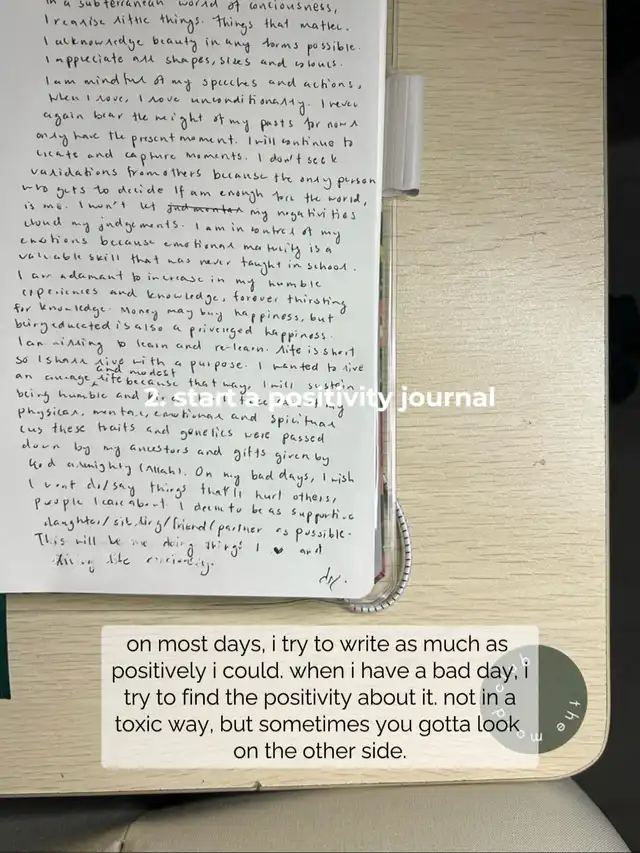 in a subterranean world of conciousness,
I realise little things. Things that matter.
I acknowledge beauty in any forms possible.
I appreciate all shapes, sizes and colours.
I am mindful of my speeches and actions,
When I love, I love unconditionally. I never
again bear the weight of my pasts for now I
only have the present moment. I will continue to
create and capture moments. I don't seek
validations from others because the only person
who gets to decide if am enough for the world,
is me. I won't let my negativities
cloud my judgements. I am in control of my
emotions because emotional maturity is a
valuable skill that was never taught in school.
I am adamant to increase in my humble
experiences and knowledge, forever thirsting
for knowledge. Money may buy happiness, but
being educated is also a privileged happiness.
I am willing to learn and re-learn. Life is short
so I shall live with a purpose. I wanted to live
an average and modest life because that way, I will sustain
being humble and my
2. start a positivity journal
physical, mental, emotional and spiritual
cus these traits and genetics were passed
down by my ancestors and gifts given by
God almighty (Allah). On my bad days, I wish
I wont do/say things that'll hurt others,
people I care about. I deem to be as supportive
daughter/sibling/friend/partner as possible.
This will be me doing things I ♥ and
living life
on most days, i try to write as much as
positively i could. when i have a bad day, i
try to find the positivity about it. not in a
toxic way, but sometimes you gotta look
on the other side.
the